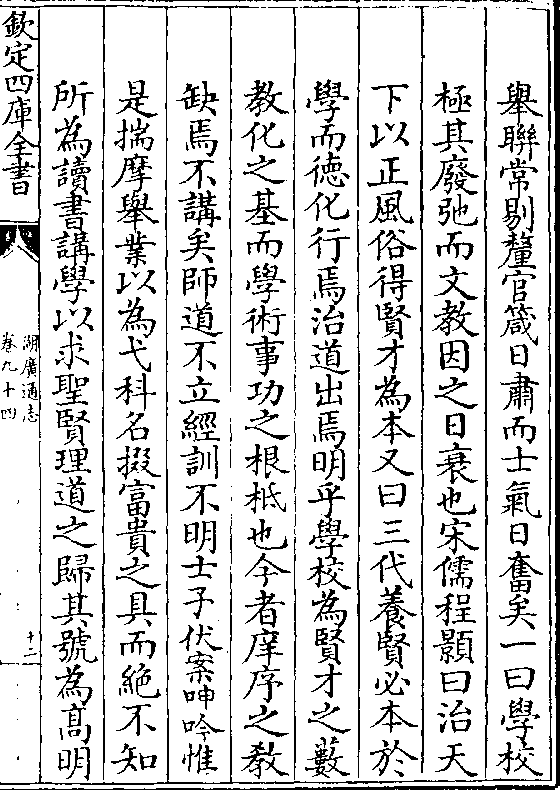 舉聯常剔釐官箴日肅而士氣日奮矣一曰學校
極其廢弛而文教因之日衰也宋儒程顥曰治天
下以正風俗得賢才為本又曰三代養賢必本於
學而德化行焉治道出焉明乎學校為賢才之藪
教化之基而學術事功之根柢也今者庠序之教
缺焉不講矣師道不立經訓不明士子伏案呻吟惟
是揣摩舉業以為弋科名掇富貴之具而絕不知
所為讀書講學以求聖賢理道之歸其號為高明
欽定四庫全書
湖廣通志
卷九十四
十二